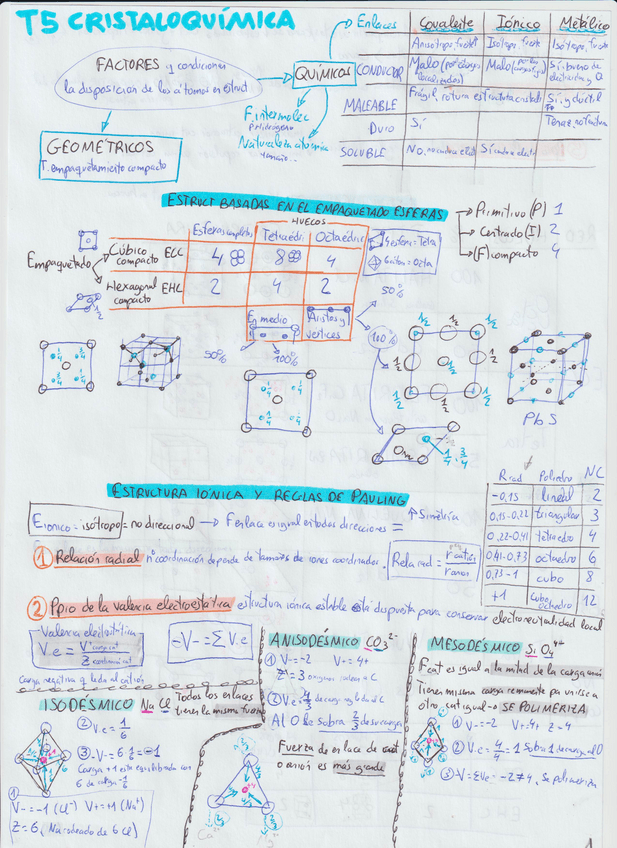 T5 CRISTALOQUÍMICA
Enlaces
Covalente
Iónico
Metálico
Anisótropo, fuerte
Isótropo, fuerte
Isótropo, fuerte
CONDUCTOR
Malo
Malo
Sí, bueno de electricidad y Q
MALEABLE
Frágil, rotura estructura cristal
Sí, y ductil
DURO
Sí
SOLUBLE
No
Sí
FACTORES y condicionan
la disposición de los átomos en estruct
QUÍMICOS
F. intermolec
p. hidrógeno
Naturaleza atómica
tamaño...
GEOMÉTRICOS
T. empaquetamiento compacto
ESTRUCT BASADAS EN EL EMPAQUETADO ESFERAS
Primitivo (P) 1
Centrado (I) 2
(F) compacto 4
HUECOS
Esferas completas
Tetraédri
Octaédric
Empaquetado
Cúbico compacto ECC
4
8
4
Hexagonal compacto EHC
2
4
2
4 esferas = Tetra
6 = Octa
En medio
Aristas y vértices
50%
100%
50%
100%
1/4
3/4
1/2
1/4, 3/4
PbS
ESTRUCTURA IÓNICA Y REGLAS DE PAULING
E iónico = isótropo = no direccional → F enlace es igual en todas direcciones = ↑ Simetría
Rrad
Poliedro
NC
-0,15
lineal
2
0,15-0.22
triangular
3
0,22-0,41
tetraedro
4
0,41-0,73
octaedro
6
0,73-1
cubo
8
+1
cubooctaedro
12
1 Relación radial nº coordinación depende de tamaños de iones coordinados.
Rela rad = r catión / r anión
2 Ppio de la valencia electroestática estructura iónica estable está dispuesta para conservar electroneutralidad local
Valencia electrostática
V.e =
-V- = Σ V.e
Carga negativa q leda al catión
ISODÉSMICO NaCl
Todos los enlaces tienen la misma fuerza
② V.e = 1/6
③ -V = 6·1/6 = -1
Carga +1 esta equilibrada con
6 de carga
①
V- = -1 (Cl⁻) V+ = +1 (Na⁺)
Z = 6, Na rodeado de 6 Cl
ANISODÉSMICO CO₃²⁻
① V- = -2 V+ = 4+
Z = 3
② V.e = 4/3
Al O le sobra 2/3 de su carga
Fuerza de enlace de
anión es más grande
MESODÉSMICO SiO₄⁴⁺
F cat es igual a la mitad de la carga
Tienen misma carga remanente pa unirse a
otro cat igual → SE POLIMERIZA
① V- = -2 V+ = 4+ Z = 4
② V.e = 4/4 = 1 Sobra 1 de carga al O
③ -V = ΣVe = -2 ≠ 4, Se polimeriza